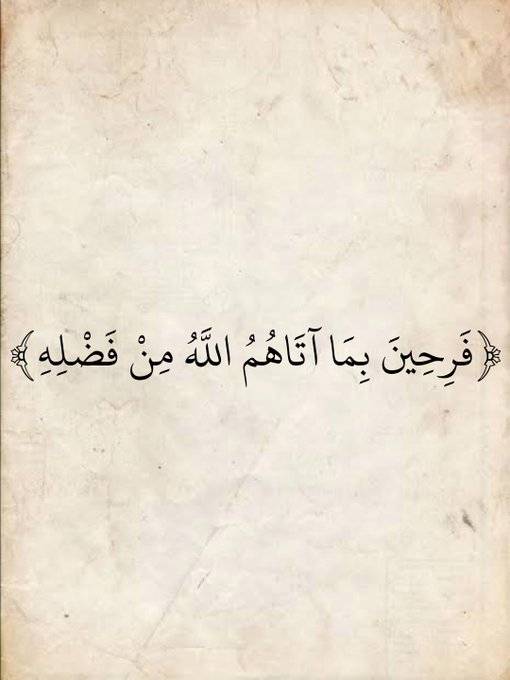 ﴿ فَرِحِينَ بِمَا آتَاهُمُ اللَّهُ مِنْ فَضْلِهِ ﴾